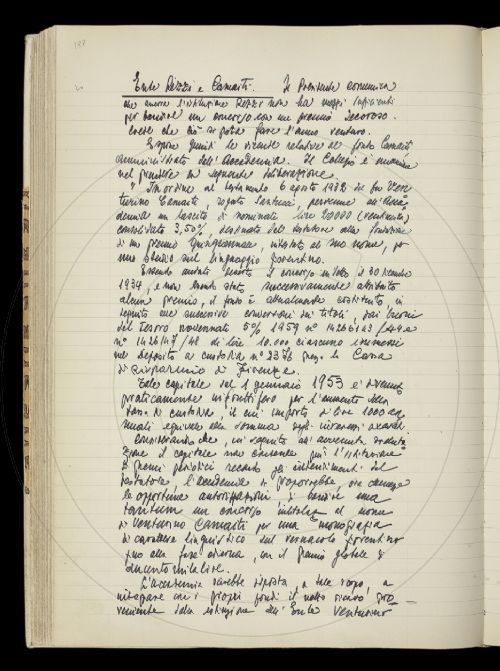 188
Ente Rezzi e Camaiti. Il Presidente comunica
che ancora l'istituzione Rezzi non ha mezzi sufficienti
per bandire un concorso con un premio decoroso.
Crede che ciò si potrà fare l'anno venturo.
Espone quindi le vicende relative al fondo Camaiti
amministrato dall'Accademia. Il Collegio è unanime
nel prendere la seguente deliberazione.
"In ordine al testamento 6 agosto 1932 del fu Ven-
turino Camaiti, rogato Santucci, pervenne all'Acca-
demia un lascito di nominali lire 20000 (ventimila)
consolidato 3,50%, destinato dal testatore alla fondazione
di un premio quinquennale, intitolato al suo nome, per
uno studio sul linguaggio fiorentino.
Essendo andato deserto il concorso indetto il 30 dicembre
1934, e non essendo stato successivamente attribuito
alcun premio, il fondo è attualmente costituito, in
seguito alle successive conversioni dei titoli, dai buoni
del Tesoro novennali 5% 1959 nº
nº 1426147/48 di lire 10.000 ciascuno immessi
nel deposito a custodia nº 2376 presso la Cassa
di Risparmio di Firenze.
Tale capitale dal 1 gennaio 1953 è divenuto
praticamente infruttifero per l'aumento della
tassa di custodia, il cui importo di lire 1000 an-
nuali equivale alla somma degli interessi
Considerando che, in seguito all'avvenuta svaluta-
zione il capitale non consente più l'istituzione
di premi periodici secondo gli intendimenti del
testatore l'accademia si proporrebbe,
le opportune autorizzazioni, di bandire una
tantum un concorso intitolato al nome
di Venturino Camaiti per una "monografia
di carattere linguistico sul vernacolo fiorentino
fino alla fase odierna, con il premio globale di
duecentomila lire.
L'accademia sarebbe disposta, a tale scopo, a
integrare con i propri fondi il netto ricavo pro-
veniente dalla estinzione dell'Ente Venturino